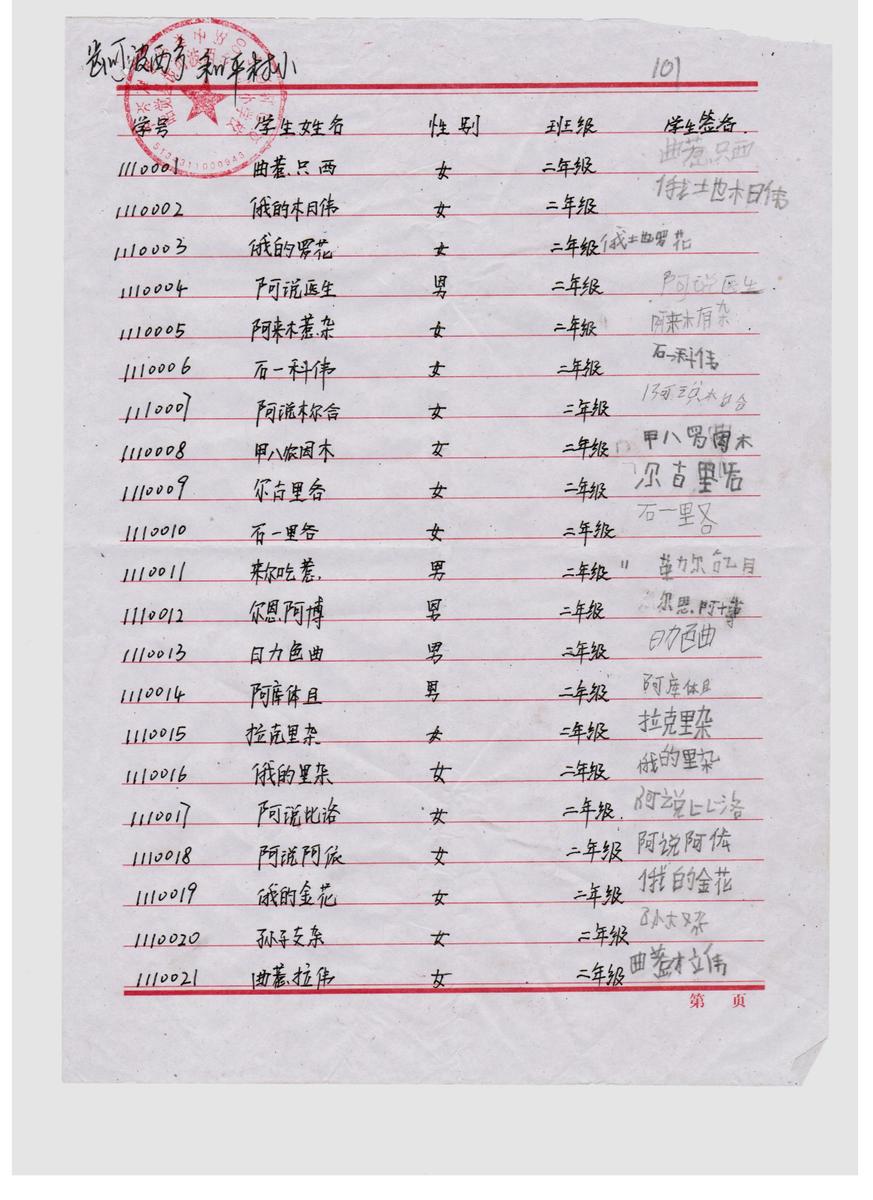 波西乡 和平村小
101
学号 学生姓名 性别 班级 学生签名
1110001 曲惹只西 女 二年级 曲惹只西
1110002 俄的木日伟 女 二年级 俄土也木日伟
1110003 俄的罗花 女 二年级 俄土也罗花
1110004 阿说医生 男 二年级 阿说医生
1110005 阿来木惹杂 女 二年级 阿来木有杂
1110006 石一科伟 女 二年级 石一科伟
1110007 阿说木尔合 女 二年级
1110008 甲八依因木 女 二年级 甲八罗因木
1110009 尔古里各 女 二年级 尔古里各
1110010 石一里各 女 二年级 石一里各
1110011 来尔吃惹 男 二年级 〃
1110012 尔恩阿博 男 二年级 尔恩阿博
1110013 日力色曲 男 二年级 日力色曲
1110014 阿库体且 男 二年级 阿库体且
1110015 拉克里杂 女 二年级 拉克里杂
1110016 俄的里杂 女 二年级 俄的里杂
1110017 阿说比洛 女 二年级 阿说比洛
1110018 阿说阿依 女 二年级 阿说阿体
1110019 俄的金花 女 二年级 俄的金花
1110020 孙子支杂 女 二年级
1110021 曲惹拉伟 女 二年级 曲惹拉伟
第 页
5134311000943